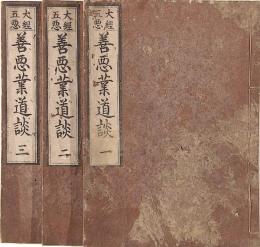 大經
五惡
善惡業道談 一
大經
五惡
善惡業道談 二
大經
五惡
善惡業道談 三